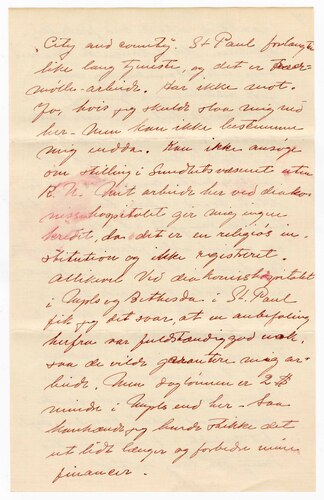 "City and county" St Paul forlangte
like lang tjeneste, og det er
arbeide. Har ikke mot.
Jo, hvis jeg skulde slaa mig ned
her - Men kan ikke bestemme
mig endda. Kan ikke ansøge
om stilling i Sundhetsvæsenet uten
R. N. Mit arbeide her ved diako-
nissehospitalet gir mig ingen
kredit, da det er en religiøs in-
stitution og ikke registreret.
Allikevel ved diakonissehospitalet
i Mpls og Bethesda i St. Paul
fik jeg det svar, at en anbefaling
herfra var fuldstændig god nok,
saa de vilde garantere mig ar-
beide. Men daglønnen er 2 $
mindre i Mpls end her. Saa
kanhænde jeg burde stikke det
ut lidt længer og forbedre mine
financer.